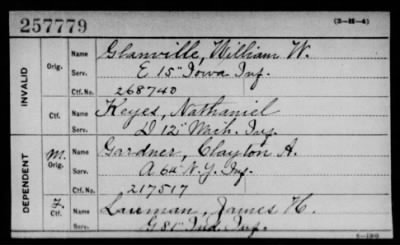 257779 (3-H-4)
INVALID
Orig. Name Glanville, William W.
Serv. E 15" Iowa Inf.
Ctf. No. 268740
Ctf. Name Keyes, Nathaniel
Serv. D 12" Mich. Inf.
DEPENDENT
M. Orig. Name Gardner, Clayton A.
Serv. A 6th N.Y. Inf.
Ctf. No. 217517
Ctf. Name James H.
Serv. G 81" Ind. Inf.